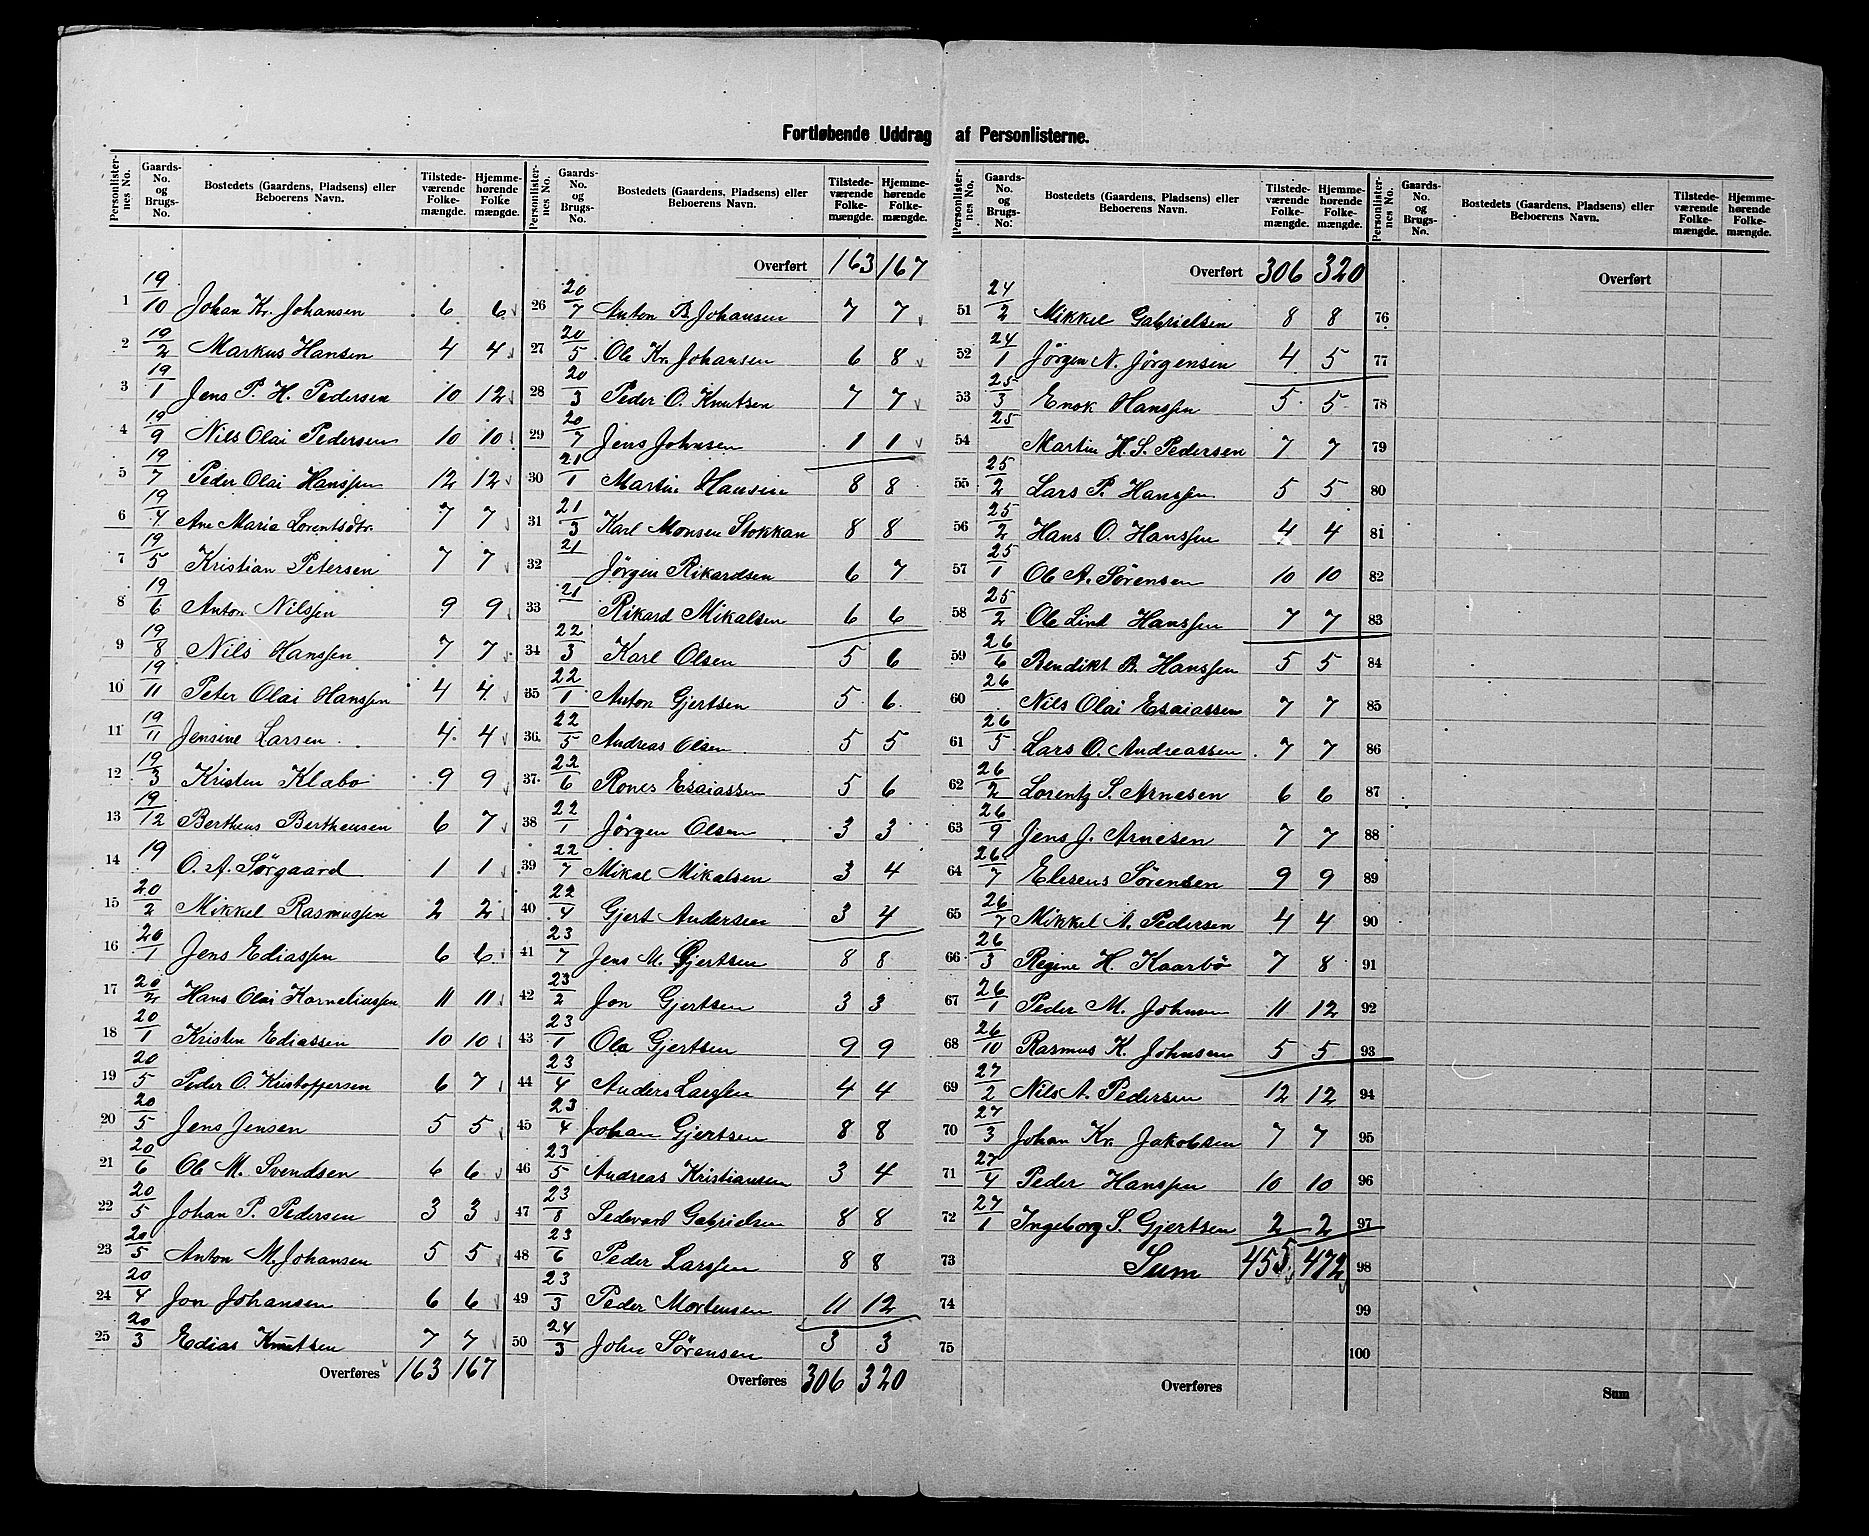 Fortløbende Uddrag af Personlisterne.
Personlister-nes No. | Gaards-No. og Brugs-No. | Bostedets (Gaardens, Pladsens) eller Beboerens Navn. | Tilstede-værende Folke-mængde. | Hjemme-hørende Folke mængde.
1 19/10 Johan Kr. Johansen 6 6
2 19/2 Markus Hansen 4 4
3 19/1 Jens P. H. Pedersen 10 12
4 19/9 Nils Olai Pedersen 10 10
5 19/7 Peder Olai Hanssen 12 12
6 19/4 Ane Maria Lorentsdtr. 7 7
7 19/5 Kristian Petersen 7 7
8 19/6 Anton Nilssen 9 9
9 19/8 Nils Hanssen 7 7
10 19/11 Peter Olai Hanssen 4 4
11 19/11 Jensine Larsen 4 4
12 19/3 Kristen Klæbo 9 9
13 19/12 Bertheus Bertheusen 6 7
14 19 O. A. Sørgaard 1 1
15 20/2 Mikkel Rasmussen 2 2
16 20/1 Jens Ediassen 6 6
17 20/2 Hans Olai Korneliussen 11 11
18 20/1 Kristen Ediassen 10 10
19 20/5 Peder O. Kristoffersen 6 7
20 20/5 Jens Jensen 5 5
21 20/6 Ole M. Svendsen 6 6
22 20/5 Johan P. Pedersen 3 3
23 20/5 Anton M. Johansen 5 5
24 20/4 Jon Johansen 6 6
25 20/3 Edias Knutsen 7 7
Overføres 163 167
Personlister-nes No. | Gaards-No. og Brugs-No. | Bostedets (Gaardens, Pladsens) eller Beboerens Navn. | Tilstede-værende Folke-mængde. | Hjemme-hørende Folke-mængde.
Overført 163 167
26 20/7 Anton B. Johansen 7 7
27 20/5 Ole Kr. Johansen 6 8
28 20/3 Peder O. Knutsen 7 7
29 20/7 Jens Johnsen 1 1
30 21/1 Martin Hansen 8 8
31 21/3 Karl Monsen Stokkan 8 8
32 21 Jørgen Rikardsen 6 7
33 21 Rikard Mikalsen 6 6
34 22/3 Karl Olsen 5 6
35 22/1 Anton Gjertsen 5 6
36 22/5 Andreas Olsen 5 5
37 22/6 Rones Esaiassen 5 6
38 22/1 Jørgen Olsen 3 3
39 22/7 Mikal Mikalsen 3 4
40 22/4 Gjert Andersen 3 4
41 23/7 Jens M. Gjertsen 8 8
42 23/2 Jon Gjertsen 3 3
43 23/1 Ola Gjertsen 9 9
44 23/4 Anders Larssen 4 4
45 23/4 Johan Gjertsen 8 8
46 23/5 Andreas Kristiansen 3 4
47 23/8 Sedevard Gabrielsen 8 8
48 23/6 Peder Larssen 8 8
49 23/3 Peder Mortensen 11 12
50 24/3 John Sørensen 3 3
Overføres 306 320
Personlister-nes No. | Gaards-No. og Brugs-No. | Bostedets (Gaardens, Pladsens) eller Beboerens Navn. | Tilstede-værende Folke-mængde. | Hjemme-hørende Folke-mængde.
Overført 306 320
51 24/2 Mikkel Gabrielsen 8 8
52 24/1 Jørgen N. Jørgensen 4 5
53 25/3 Enok Hanssen 5 5
54 25 Martin H. S. Pedersen 7 7
55 25/2 Lars P. Hanssen 5 5
56 25/2 Hans O. Hanssen 4 4
57 25/1 Ole A. Sørensen 10 10
58 25/2 Ole Lind Hanssen 7 7
59 26/6 Bendikt B. Hanssen 5 5
60 26 Nils Olai Esaiassen 7 7
61 26/5 Lars O. Andreassen 7 7
62 26/2 Lorentz S. Arnesen 6 6
63 26/9 Jens J. Arnesen 7 7
64 26/7 Eliseus Sørensen 9 9
65 26/7 Mikkel A. Pedersen 4 4
66 26/3 Regine H. Kaarbø 7 8
67 26/1 Peder M. Johnsen 11 12
68 26/10 Rasmus K. Johnsen 5 5
69 27/2 Nils A. Pedersen 12 12
70 27/3 Johan Kr. Jakobsen 7 7
71 27/4 Peder Hanssen 10 10
72 27/1 Ingeborg S. Gjertsen 2 2
73 Sum 455 472
74
75
Overføres
Personlister-nes No. | Gaards-No. og Brugs-No. | Bostedets (Gaardens, Pladsens) eller Beboerens Navn. | Tilstede-værende Folke-mængde. | Hjemme-hørende Folke-mængde.
Overført
76
77
78
79
80
81
82
83
84
85
86
87
88
89
90
91
92
93
94
95
96
97
98
99
100
Sum